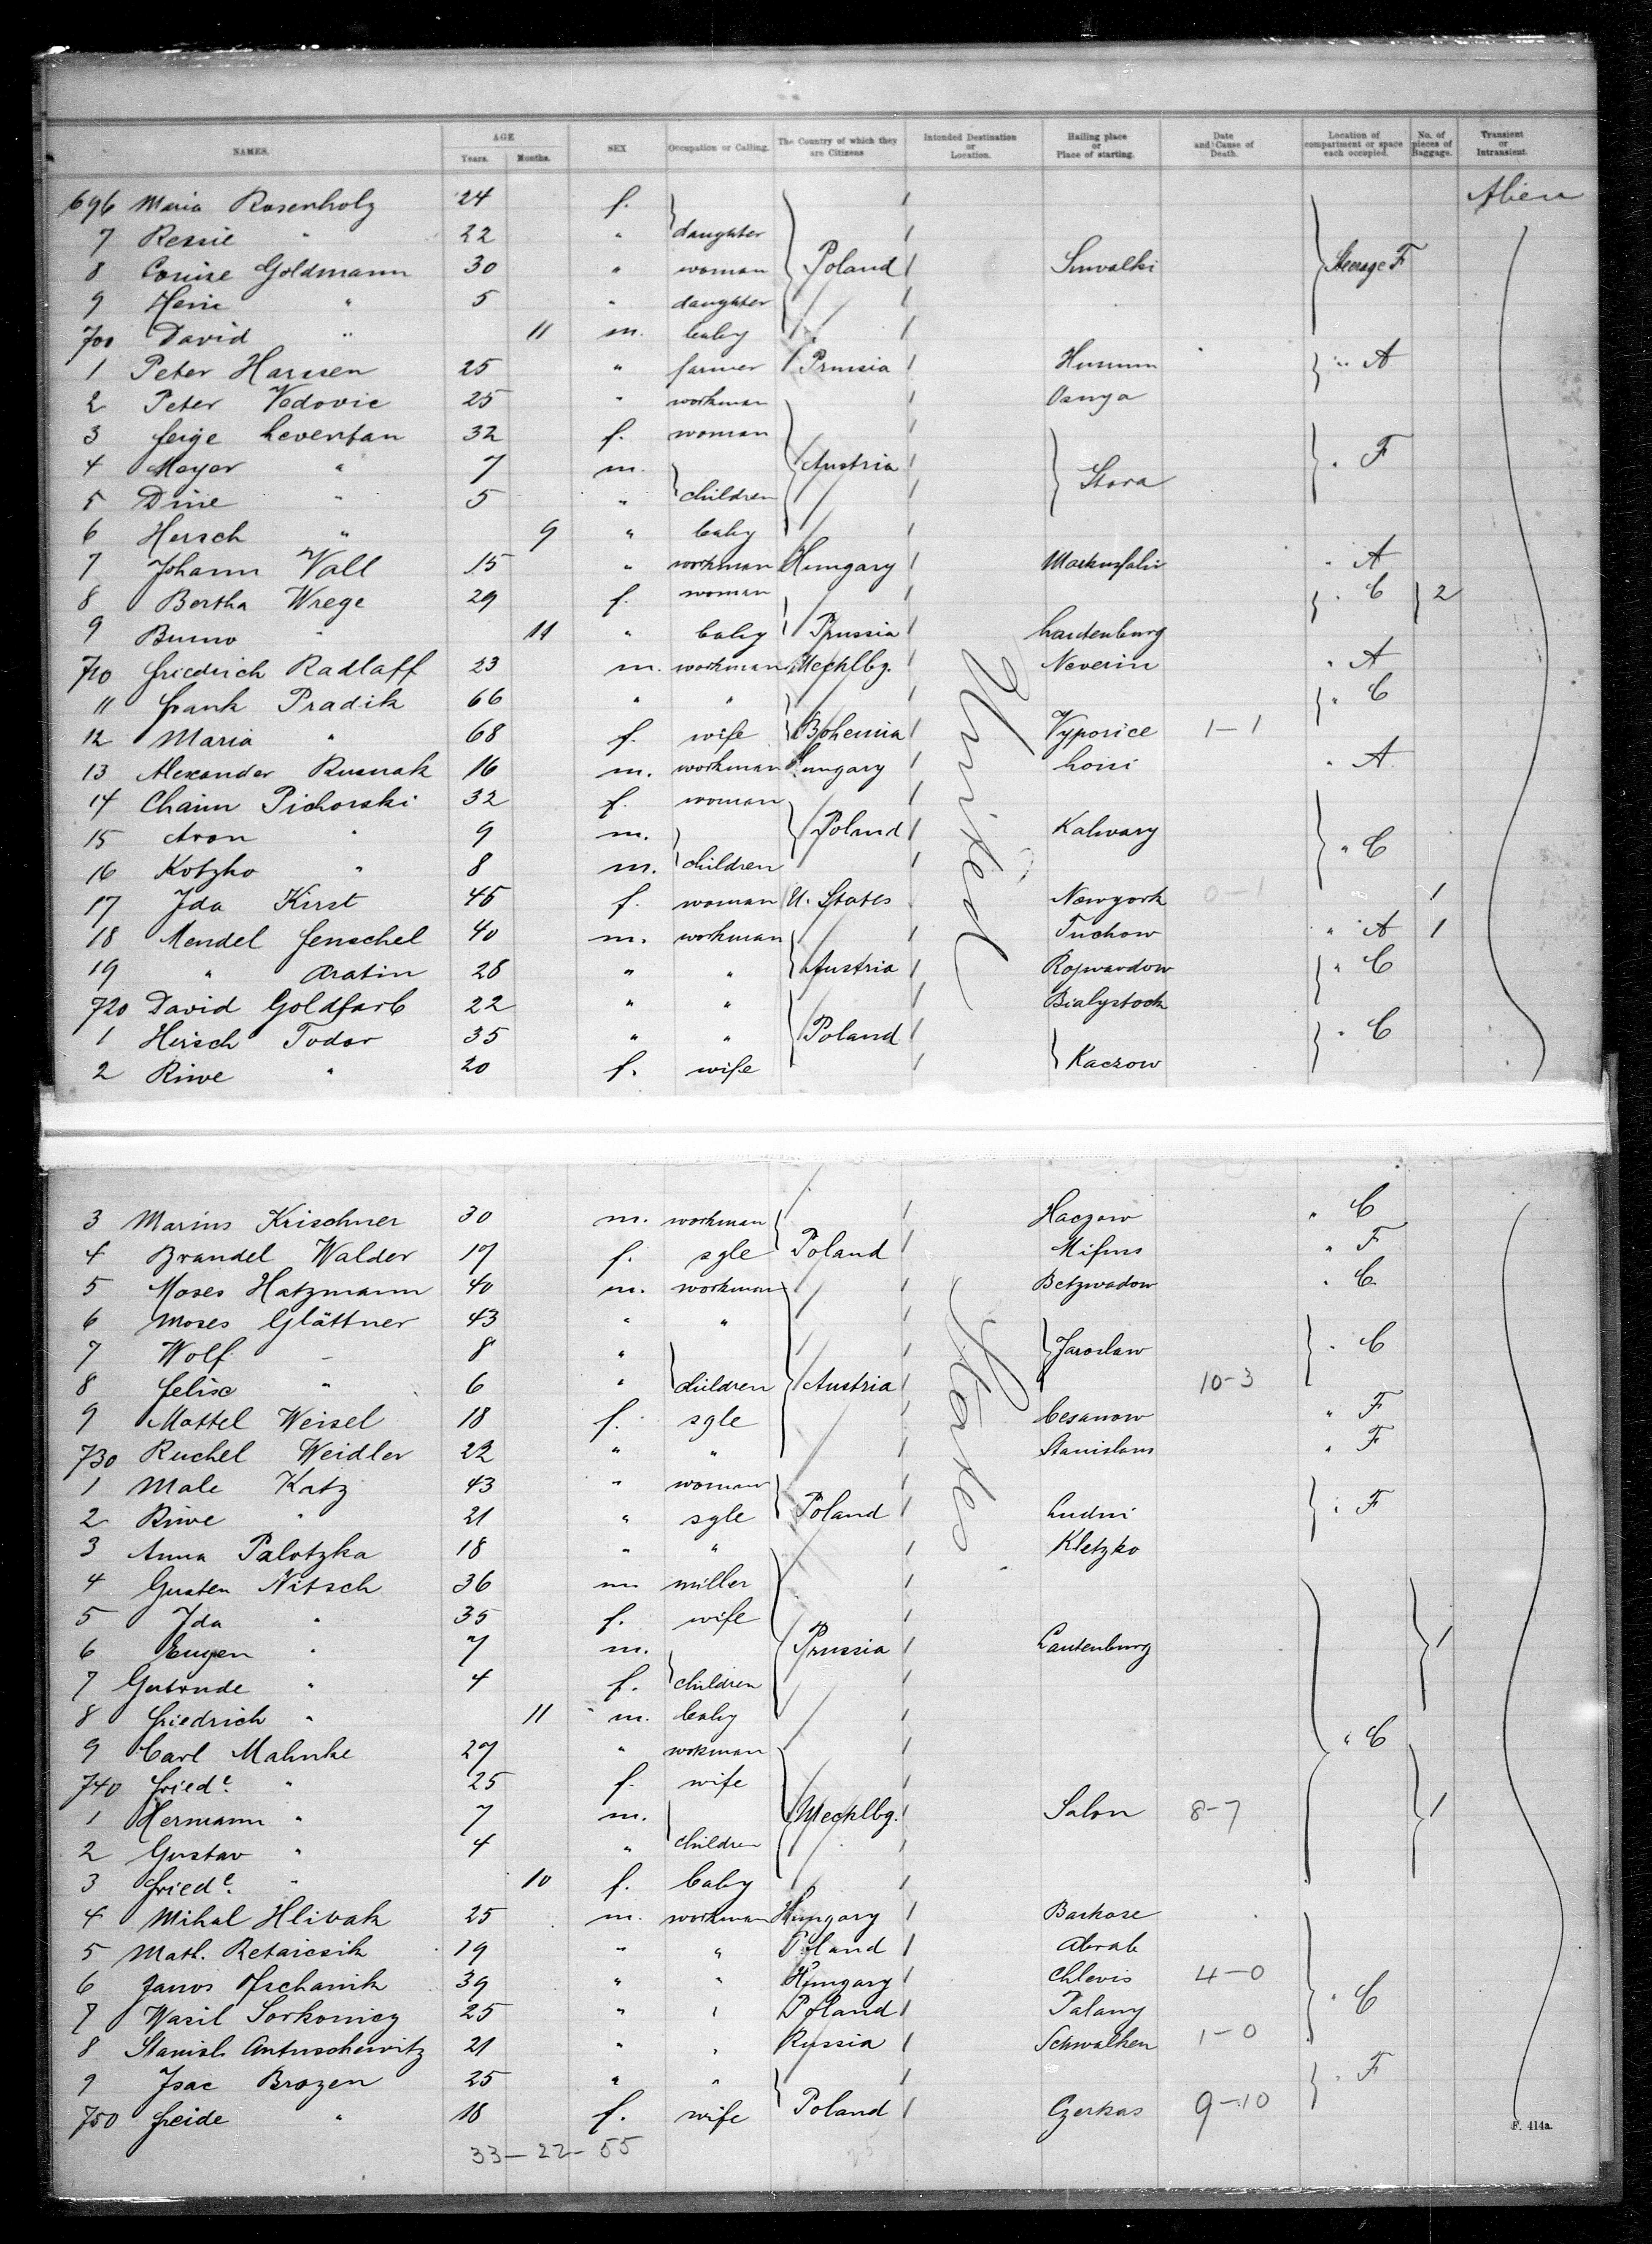 NAMES. AGE Years. Months. SEX Occupation or Calling. The Country of which they are Citizens Intended Destination or Location. Hailing place or Place of starting. Date and Cause of Death. Location of compartment or space each occupied. No. of pieces of Baggage. Transient or Intransient.
696 Maria Rosenholz 24 f. Alien
7 Ressie " 22 " daughter
8 Louise Goldmann 30 " woman Poland Suwalki Steerage F
9 " 5 " daughter
700 David " 11 m. baby
1 Peter Hanssen 25 " farmer Prussia Husum " A
2 Peter Vedovic 25 " workman
3 feige 32 f. woman
4 Meyer " 7 m. Austria Stara " F
5 Dine " 5 " children
6 Hersch " 9 " baby
7 Johann Vall 15 " workman Hungary " A
8 Bertha Wrege 29 f. woman " C 2
9 Bruno " 11 " baby Prussia Lautenburg
710 friedrich Radlaff 23 m. workman Mecklbg. Neverin " A
11 frank Pradik 66 " " " C
12 Maria " 68 f. wife Bohemia Vyposice 1-1
13 Alexander Rusnak 16 m. workman Hungary " A
14 Chaim Pichorski 32 f. woman
15 Aron " 9 m. Poland Kalwary
16 Kotzko " 8 m. children " C
17 Ida Kirst 45 f. woman U. States Newyork 0-1 1
18 Mendel fenschel 40 m. workman Tuchow " A 1
19 " Aratin 28 " " Austria Rojwardow " C
720 David Goldfarb 22 " " Bialystock
1 Hirsch Todor 35 " " Poland " C
2 Riwe " 20 f. wife Kaczow
United
3 Marius Krischner 30 m. workman Haczow " C
4 Brandel Walder 17 f. sgle Poland " F
5 Moses Hatzmann 40 m. workman Betzwadow " C.
6 Moses Glättner 43 " "
7 Wolf " 8 " Jaroslaw " C
8 felise " 6 " children Austria 10-3
9 Mottel Weisel 18 f. sgle Cesanow " F
730 Ruchel Weidler 22 " " Stanislaus " F
1 Male Katz 43 " woman
2 Riwe " 21 " sgle Poland Ludwi " F
3 Anna Palotzka 18 " " Kletzko
4 Gusten Nitsch 36 m miller
5 Ida " 35 f. wife
6 Eugen " 7 m. Prussia Lautenburg 1
7 Gertrude " 4 f. children
8 friedrich " 11 m. baby
9 Carl Mahnke 27 " workman " C
740 fried<sup>e</sup>. " 25 f. wife
1 Hermann " 7 m. Mecklbg. Salon 8-7 1
2 Gustav " 4 " children
3 fried<sup>e</sup>. " 10 f. baby
4 Mihal Hlivak 25 m. workman Hungary Barkose
5 Math. Retaicsik 19 " " Poland Abrab
6 Janos 39 " " Hungary Chlevis 4-0
7 Wasil Sorkonicz 25 " " Poland Palany " C
8 Stanisl. Antuschewitz 21 " " Russia Schwalken 1-0
9 Isac Brozen 25 " " " F
750 freide " 18 f. wife Poland Czerkas 9-10
States
F. 414a.
33-22-55